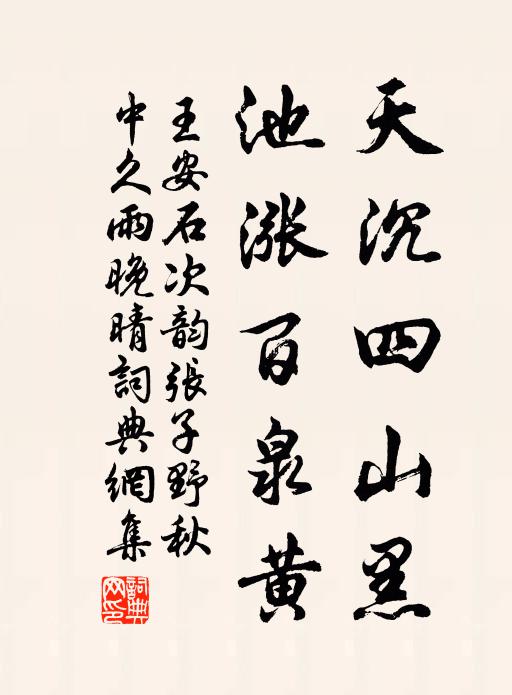 天沉四山黑
池漲百泉黃
王安石次韵張子野秋
中久雨晚晴詞典網集
詞典網印